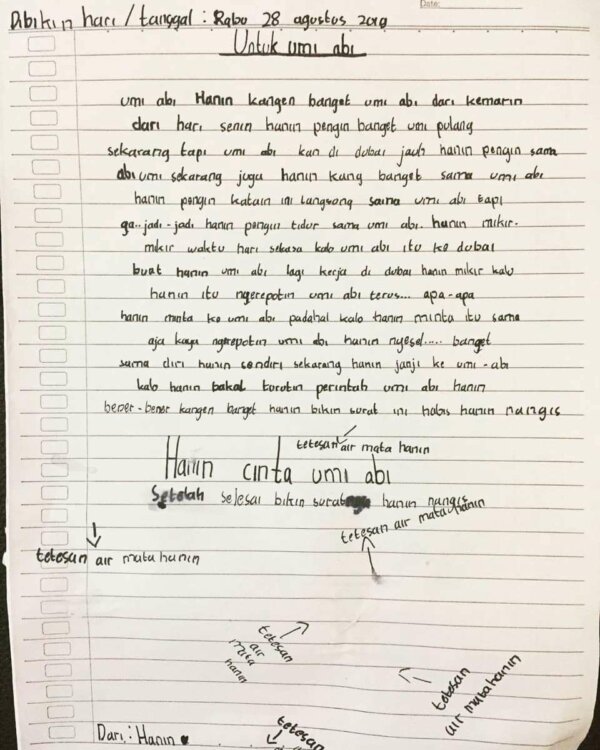 Date:
Dibikin hari / tanggal : Rabu 28 agustus 2019
Untuk umi abi
umi abi Hanin kangen banget umi abi dari kemarin
dari hari senin hanin pengin banget umi pulang
sekarang tapi umi abi kan di dubai jauh hanin pengin sama
abi umi sekarang juga hanin kang banget sama umi abi
hanin pengin katain ini langsong sama umi abi tapi
ga..jadi-jadi hanin pengin tidur sama umi abi. hanin mikir.
mikir waktu hari sekasa kalo umi abi itu ke dubai
buat hanin umi abi lagi kerja di dubai hanin mikir kalo
hanin itu ngerepotin umi abi terus... apa-apa
hanin minta ke umi abi padahal kalo hanin minta itu sama
aja kaya ngerepotin umi abi hanin nyesel..... banget
sama diri hanin sendiri sekarang hanin janji ke umi-abi
kalo hanin bakal torotin perintah umi abi hanin
bener-bener kangen banget hanin bikin surat ini habis hanin nangis
tetesan air mata hanin
Hanin cinta umi abi
Setelah selesai bikin surat hanin nangis
tetesan air mata hanin
tetesan air mata hanin
tetesan
air
mata
hanin
tetesan
air mata hanin
Dari : Hanin
tetesan